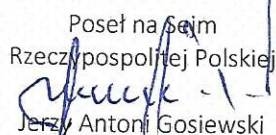 Poseł na Sejm
Rzeczypospolitej Polskiej
Jerzy Antoni Gosiewski